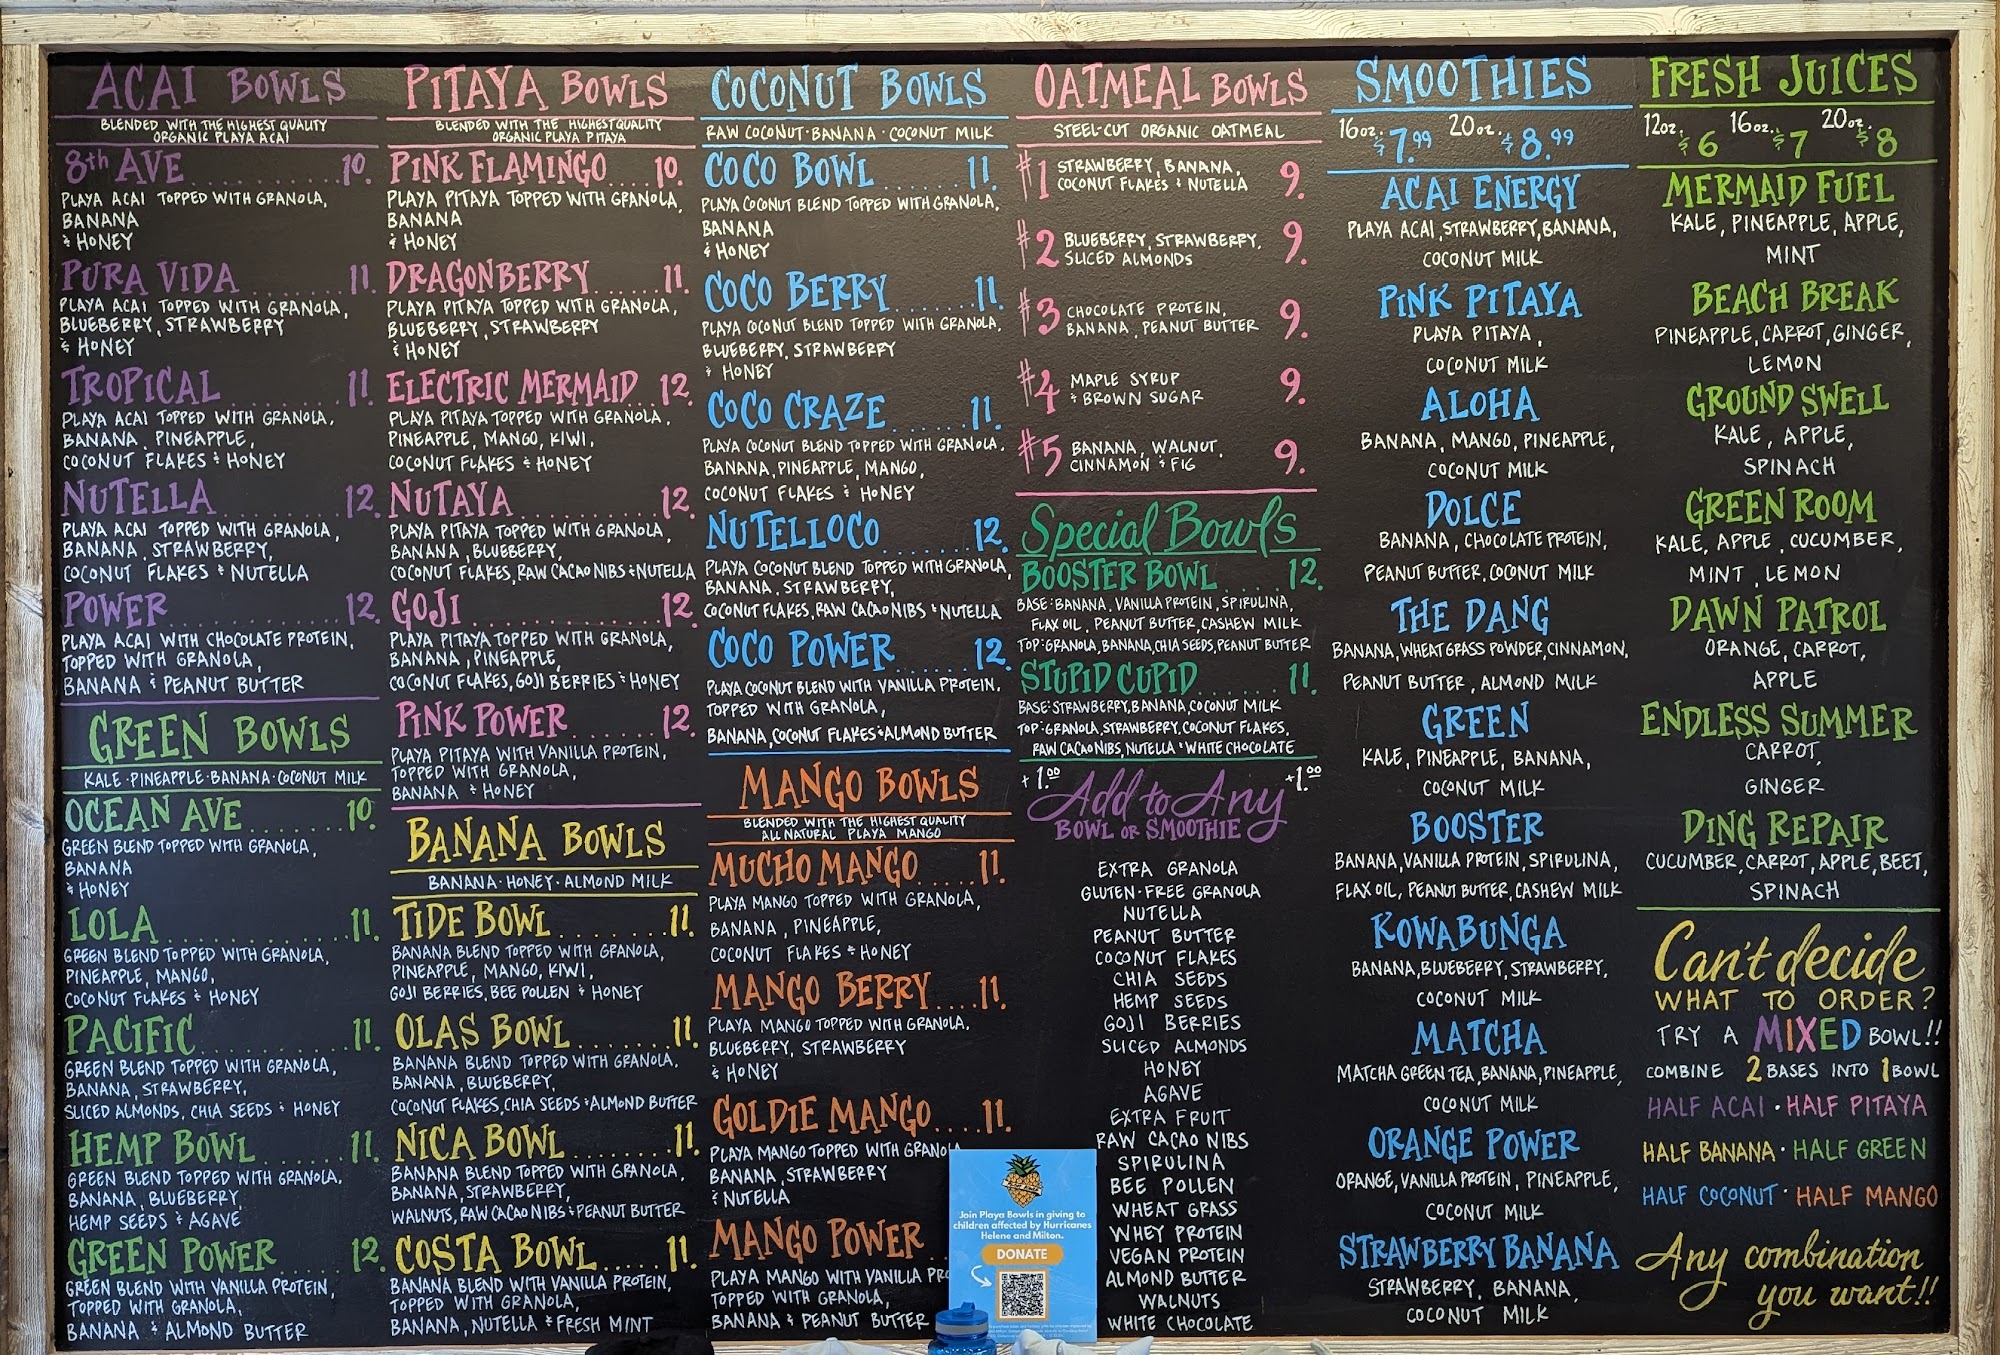 ACAI BOWLS
BLENDED WITH THE HIGHEST QUALITY
ORGANIC PLAYA ACAI
8th AVE 10.
PLAYA ACAI TOPPED WITH GRANOLA,
BANANA
& HONEY
PURA VIDA 11.
PLAYA ACAI TOPPED WITH GRANOLA,
BLUEBERRY, STRAWBERRY
& HONEY
TROPICAL 11.
PLAYA ACAI TOPPED WITH GRANOLA,
BANANA, PINEAPPLE,
COCONUT FLAKES & HONEY
NUTELLA 12.
PLAYA ACAI TOPPED WITH GRANOLA,
BANANA, STRAWBERRY,
COCONUT FLAKES & NUTELLA
POWER 12.
PLAYA ACAI WITH CHOCOLATE PROTEIN,
TOPPED WITH GRANOLA,
BANANA & PEANUT BUTTER
GREEN BOWLS
KALE · PINEAPPLE · BANANA · COCONUT MILK
OCEAN AVE 10.
GREEN BLEND TOPPED WITH GRANOLA,
BANANA
& HONEY
LOLA 11.
GREEN BLEND TOPPED WITH GRANOLA,
PINEAPPLE, MANGO,
COCONUT FLAKES & HONEY
PACIFIC 11.
GREEN BLEND TOPPED WITH GRANOLA,
BANANA, STRAWBERRY,
SLICED ALMONDS, CHIA SEEDS & HONEY
HEMP BOWL 11.
GREEN BLEND TOPPED WITH GRANOLA,
BANANA, BLUEBERRY,
HEMP SEEDS & AGAVE
GREEN POWER 12.
GREEN BLEND WITH VANILLA PROTEIN,
TOPPED WITH GRANOLA,
BANANA & ALMOND BUTTER
PITAYA BOWLS
BLENDED WITH THE HIGHEST QUALITY
ORGANIC PLAYA PITAYA
PINK FLAMINGO 10.
PLAYA PITAYA TOPPED WITH GRANOLA,
BANANA
& HONEY
DRAGONBERRY 11.
PLAYA PITAYA TOPPED WITH GRANOLA,
BLUEBERRY, STRAWBERRY
& HONEY
ELECTRIC MERMAID 12.
PLAYA PITAYA TOPPED WITH GRANOLA,
PINEAPPLE, MANGO, KIWI,
COCONUT FLAKES & HONEY
NUTAYA 12.
PLAYA PITAYA TOPPED WITH GRANOLA,
BANANA, BLUEBERRY,
COCONUT FLAKES, RAW CACAO NIBS & NUTELLA
GOJI 12.
PLAYA PITAYA TOPPED WITH GRANOLA,
BANANA, PINEAPPLE,
COCONUT FLAKES, GOJI BERRIES & HONEY
PINK POWER 12.
PLAYA PITAYA WITH VANILLA PROTEIN,
TOPPED WITH GRANOLA,
BANANA & HONEY
BANANA BOWLS
BANANA · HONEY · ALMOND MILK
TIDE BOWL 11.
BANANA BLEND TOPPED WITH GRANOLA,
PINEAPPLE, MANGO, KIWI,
GOJI BERRIES, BEE POLLEN & HONEY
OLAS BOWL 11.
BANANA BLEND TOPPED WITH GRANOLA,
BANANA, BLUEBERRY,
COCONUT FLAKES, CHIA SEEDS & ALMOND BUTTER
NICA BOWL 11.
BANANA BLEND TOPPED WITH GRANOLA,
BANANA, STRAWBERRY,
WALNUTS, RAW CACAO NIBS & PEANUT BUTTER
COSTA BOWL 11.
BANANA BLEND WITH VANILLA PROTEIN,
TOPPED WITH GRANOLA,
BANANA, NUTELLA & FRESH MINT
COCONUT BOWLS
RAW COCONUT · BANANA · COCONUT MILK
COCO BOWL 11.
PLAYA COCONUT BLEND TOPPED WITH GRANOLA,
BANANA
& HONEY
COCO BERRY 11.
PLAYA COCONUT BLEND TOPPED WITH GRANOLA,
BLUEBERRY, STRAWBERRY
& HONEY
COCO CRAZE 11.
PLAYA COCONUT BLEND TOPPED WITH GRANOLA,
BANANA, PINEAPPLE, MANGO,
COCONUT FLAKES & HONEY
NUTELLOCO 12.
PLAYA COCONUT BLEND TOPPED WITH GRANOLA,
BANANA, STRAWBERRY,
COCONUT FLAKES, RAW CACAO NIBS & NUTELLA
COCO POWER 12.
PLAYA COCONUT BLEND WITH VANILLA PROTEIN,
TOPPED WITH GRANOLA,
BANANA, COCONUT FLAKES & ALMOND BUTTER
MANGO BOWLS
BLENDED WITH THE HIGHEST QUALITY
ALL NATURAL PLAYA MANGO
MUCHO MANGO 11.
PLAYA MANGO TOPPED WITH GRANOLA,
BANANA, PINEAPPLE,
COCONUT FLAKES & HONEY
MANGO BERRY 11.
PLAYA MANGO TOPPED WITH GRANOLA,
BLUEBERRY, STRAWBERRY
& HONEY
GOLDIE MANGO 11.
PLAYA MANGO TOPPED WITH GRANOLA
BANANA, STRAWBERRY
& NUTELLA
MANGO POWER
PLAYA MANGO WITH VANILLA PRO
TOPPED WITH GRANOLA,
BANANA & PEANUT BUTTER
OATMEAL BOWLS
STEEL-CUT ORGANIC OATMEAL
#1 STRAWBERRY, BANANA, 9.
COCONUT FLAKES & NUTELLA
#2 BLUEBERRY, STRAWBERRY, 9.
SLICED ALMONDS
#3 CHOCOLATE PROTEIN, 9.
BANANA, PEANUT BUTTER
#4 MAPLE SYRUP 9.
& BROWN SUGAR
#5 BANANA, WALNUT, 9.
CINNAMON & FIG
Special Bowls
BOOSTER BOWL 12.
BASE: BANANA, VANILLA PROTEIN, SPIRULINA,
FLAX OIL, PEANUT BUTTER, CASHEW MILK
TOP: GRANOLA, BANANA, CHIA SEEDS, PEANUT BUTTER
STUPID CUPID 11.
BASE: STRAWBERRY, BANANA, COCONUT MILK
TOP: GRANOLA, STRAWBERRY, COCONUT FLAKES,
RAW CACAO NIBS, NUTELLA & WHITE CHOCOLATE
+1.00 Add to Any +1.00
BOWL OR SMOOTHIE
EXTRA GRANOLA
GLUTEN-FREE GRANOLA
NUTELLA
PEANUT BUTTER
COCONUT FLAKES
CHIA SEEDS
HEMP SEEDS
GOJI BERRIES
SLICED ALMONDS
HONEY
AGAVE
EXTRA FRUIT
RAW CACAO NIBS
SPIRULINA
BEE POLLEN
WHEAT GRASS
WHEY PROTEIN
VEGAN PROTEIN
ALMOND BUTTER
WALNUTS
WHITE CHOCOLATE
Join Playa Bowls in giving to
children affected by Hurricanes
Helene and Milton.
DONATE
SMOOTHIES
16oz. $7.99 20oz. $8.99
ACAI ENERGY
PLAYA ACAI, STRAWBERRY, BANANA,
COCONUT MILK
PINK PITAYA
PLAYA PITAYA,
COCONUT MILK
ALOHA
BANANA, MANGO, PINEAPPLE,
COCONUT MILK
DOLCE
BANANA, CHOCOLATE PROTEIN,
PEANUT BUTTER, COCONUT MILK
THE DANG
BANANA, WHEATGRASS POWDER, CINNAMON,
PEANUT BUTTER, ALMOND MILK
GREEN
KALE, PINEAPPLE, BANANA,
COCONUT MILK
BOOSTER
BANANA, VANILLA PROTEIN, SPIRULINA,
FLAX OIL, PEANUT BUTTER, CASHEW MILK
KOWABUNGA
BANANA, BLUEBERRY, STRAWBERRY,
COCONUT MILK
MATCHA
MATCHA GREEN TEA, BANANA, PINEAPPLE,
COCONUT MILK
ORANGE POWER
ORANGE, VANILLA PROTEIN, PINEAPPLE,
COCONUT MILK
STRAWBERRY BANANA
STRAWBERRY, BANANA,
COCONUT MILK
FRESH JUICES
12oz. $6 16oz. $7 20oz. $8
MERMAID FUEL
KALE, PINEAPPLE, APPLE,
MINT
BEACH BREAK
PINEAPPLE, CARROT, GINGER,
LEMON
GROUND SWELL
KALE, APPLE,
SPINACH
GREEN ROOM
KALE, APPLE, CUCUMBER,
MINT, LEMON
DAWN PATROL
ORANGE, CARROT,
APPLE
ENDLESS SUMMER
CARROT,
GINGER
DING REPAIR
CUCUMBER, CARROT, APPLE, BEET,
SPINACH
Can't decide
WHAT TO ORDER?
TRY A MIXED BOWL!!
COMBINE 2 BASES INTO 1 BOWL
HALF ACAI · HALF PITAYA
HALF BANANA · HALF GREEN
HALF COCONUT · HALF MANGO
Any combination
you want!!